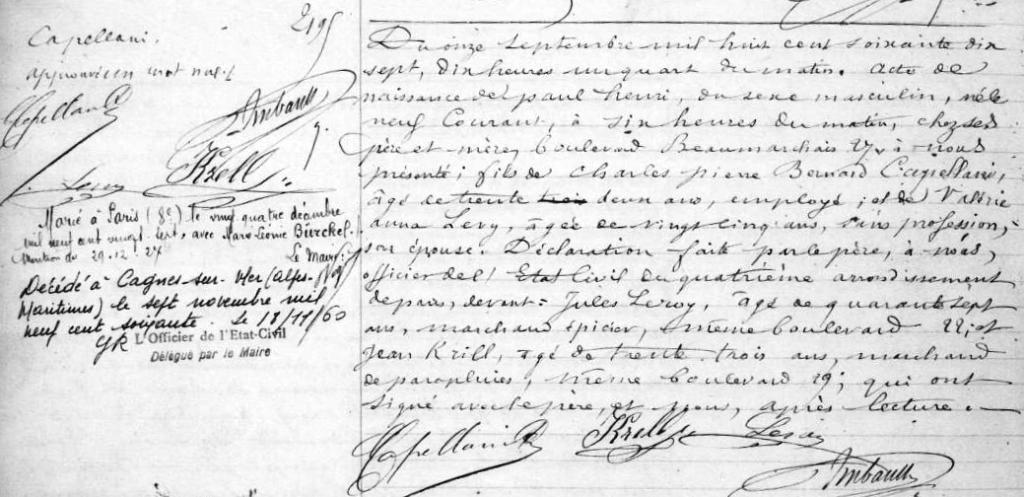 2195
Capellani.
approuvé un mot nul
Capellani
Imbault
Krell
Leroy
Marié à Paris (8e) le vingt quatre décembre
mil neuf cent vingt-sept, avec Marie Léonie Bürckel.
Mention du 29.12.27
Le Maire:
Décédé à Cagnes-sur-Mer (Alpes-
Maritimes) le sept novembre mil
neuf cent soixante. Le 18/11/60
L'Officier de l'Etat-Civil
Délégué par le Maire
Du onze Septembre mil huit cent soixante dix
sept, dix heures un quart du matin. Acte de
naissance de paul henri, du sexe masculin, né le
neuf Courant, à six heures du matin, chez ses
père et mère, boulevard Beaumarchais 27, à nous
présenté; fils de Charles pierre Bernard Capellani,
âgé de trente trois deux ans, employé; et de Valérie
anna Levy, agée de vingt cinq ans, sans profession,
son épouse. Déclaration faite par le père, à nous,
officier de l'Etat Civil du quatrième arrondissement
de paris, devant: Jules Leroy, âgé de quarante sept
ans, marchand épicier, même boulevard 22; et
Jean Krill, agé de trente trois ans, marchand
de parapluies, même boulevard 29; qui ont
signé avec le père, et nous, après lecture.
Capellani
Krell
Leroy
Imbault